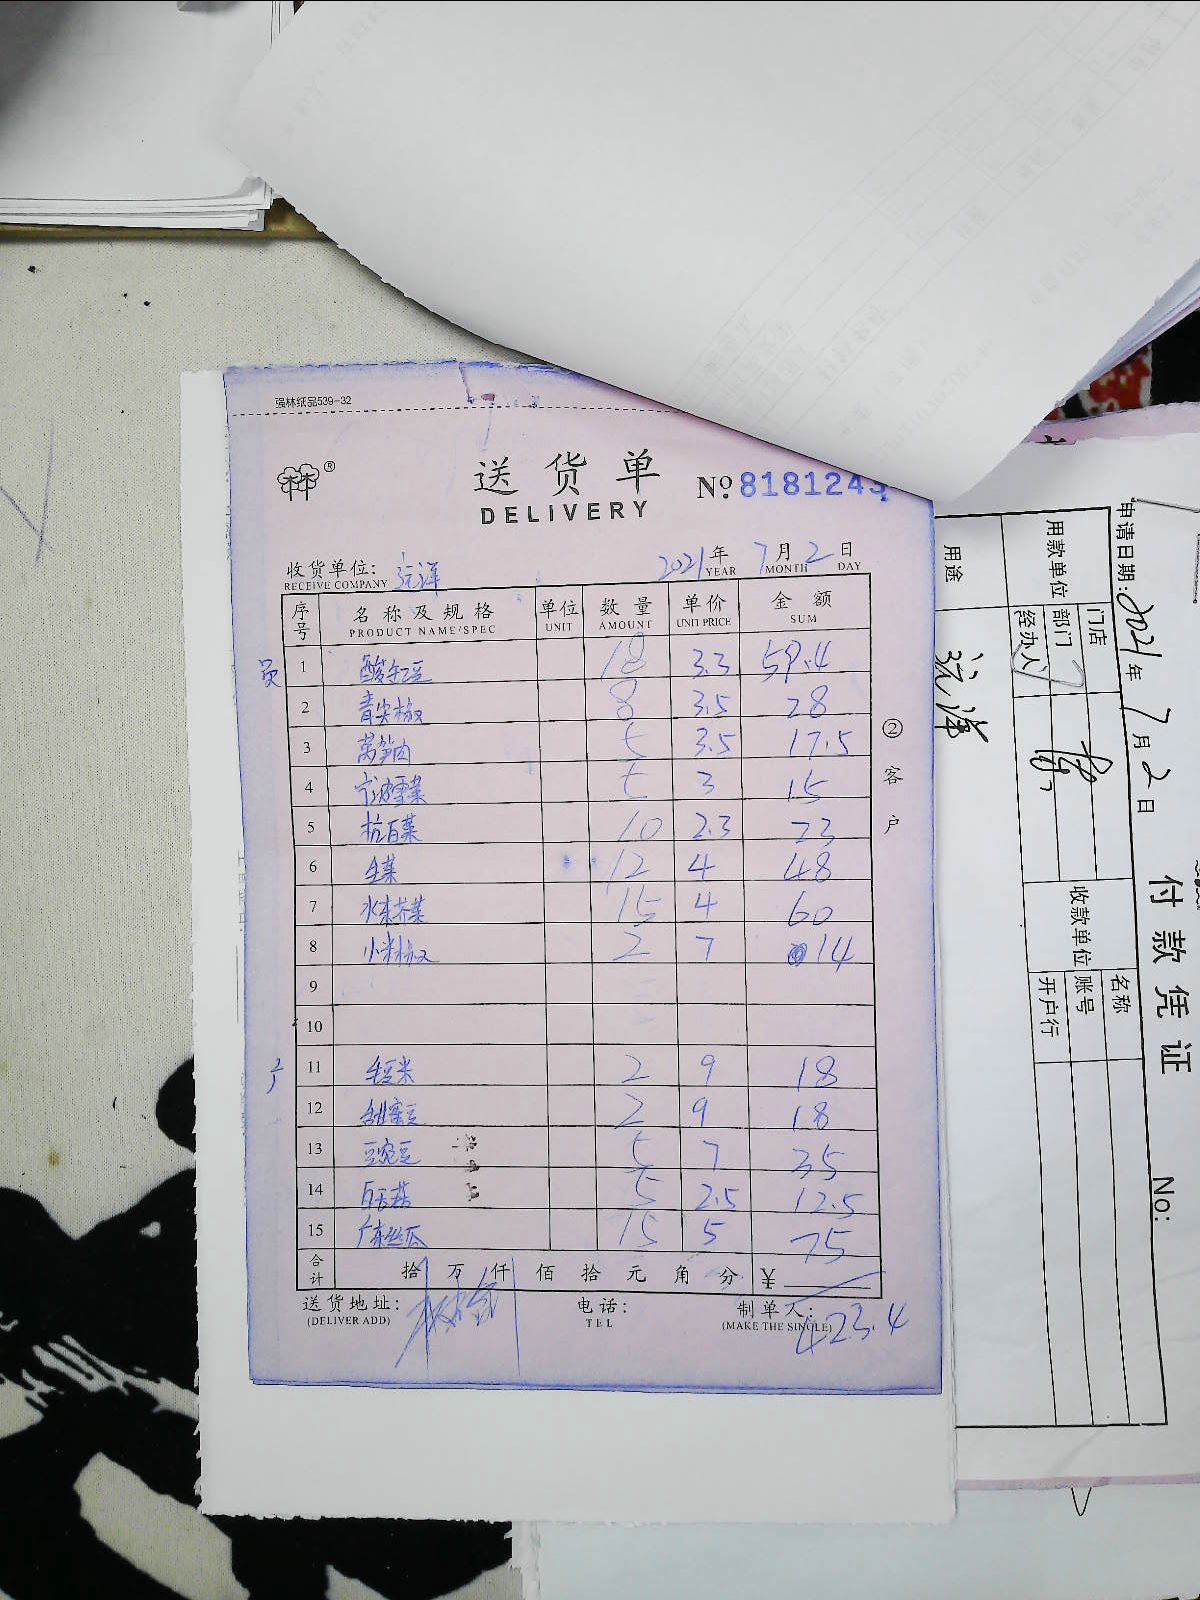 强林纸品539-32
林®
送货单
DELIVERY
№ 8181243
收货单位: 远洋 2021年 7月 2日
RECEIVE COMPANY YEAR MONTH DAY
序号 名称及规格 单位 数量 单价 金额
PRODUCT NAME/SPEC UNIT AMOUNT UNIT PRICE SUM
员 1 酸缸豆 18 3.3 59.4
2 青尖椒 8 3.5 28
3 莴笋肉 5 3.5 17.5
4 3 15
5 杭百菜 10 2.3 23
6 生菜 12 4 48
7 水东芥菜 15 4 60
8 小米椒 2 7 14
9
10
11 毛豆米 2 9 18
12 甜蜜豆 2 9 18
13 豆宛豆 5 7 35
14 2.5 12.5
15 广东丝瓜 15 5 75
合计 拾 万 仟 佰 拾 元 角 分 ¥
423.4
送货地址: 电话: 制单人:
(DELIVER ADD) TEL (MAKE THE SINGLE)
②客户
付款凭证 No:
申请日期: 2021年 7月 2日
用款单位 门店
部门
经办人
收款单位 名称
账号
开户行
用途 远洋